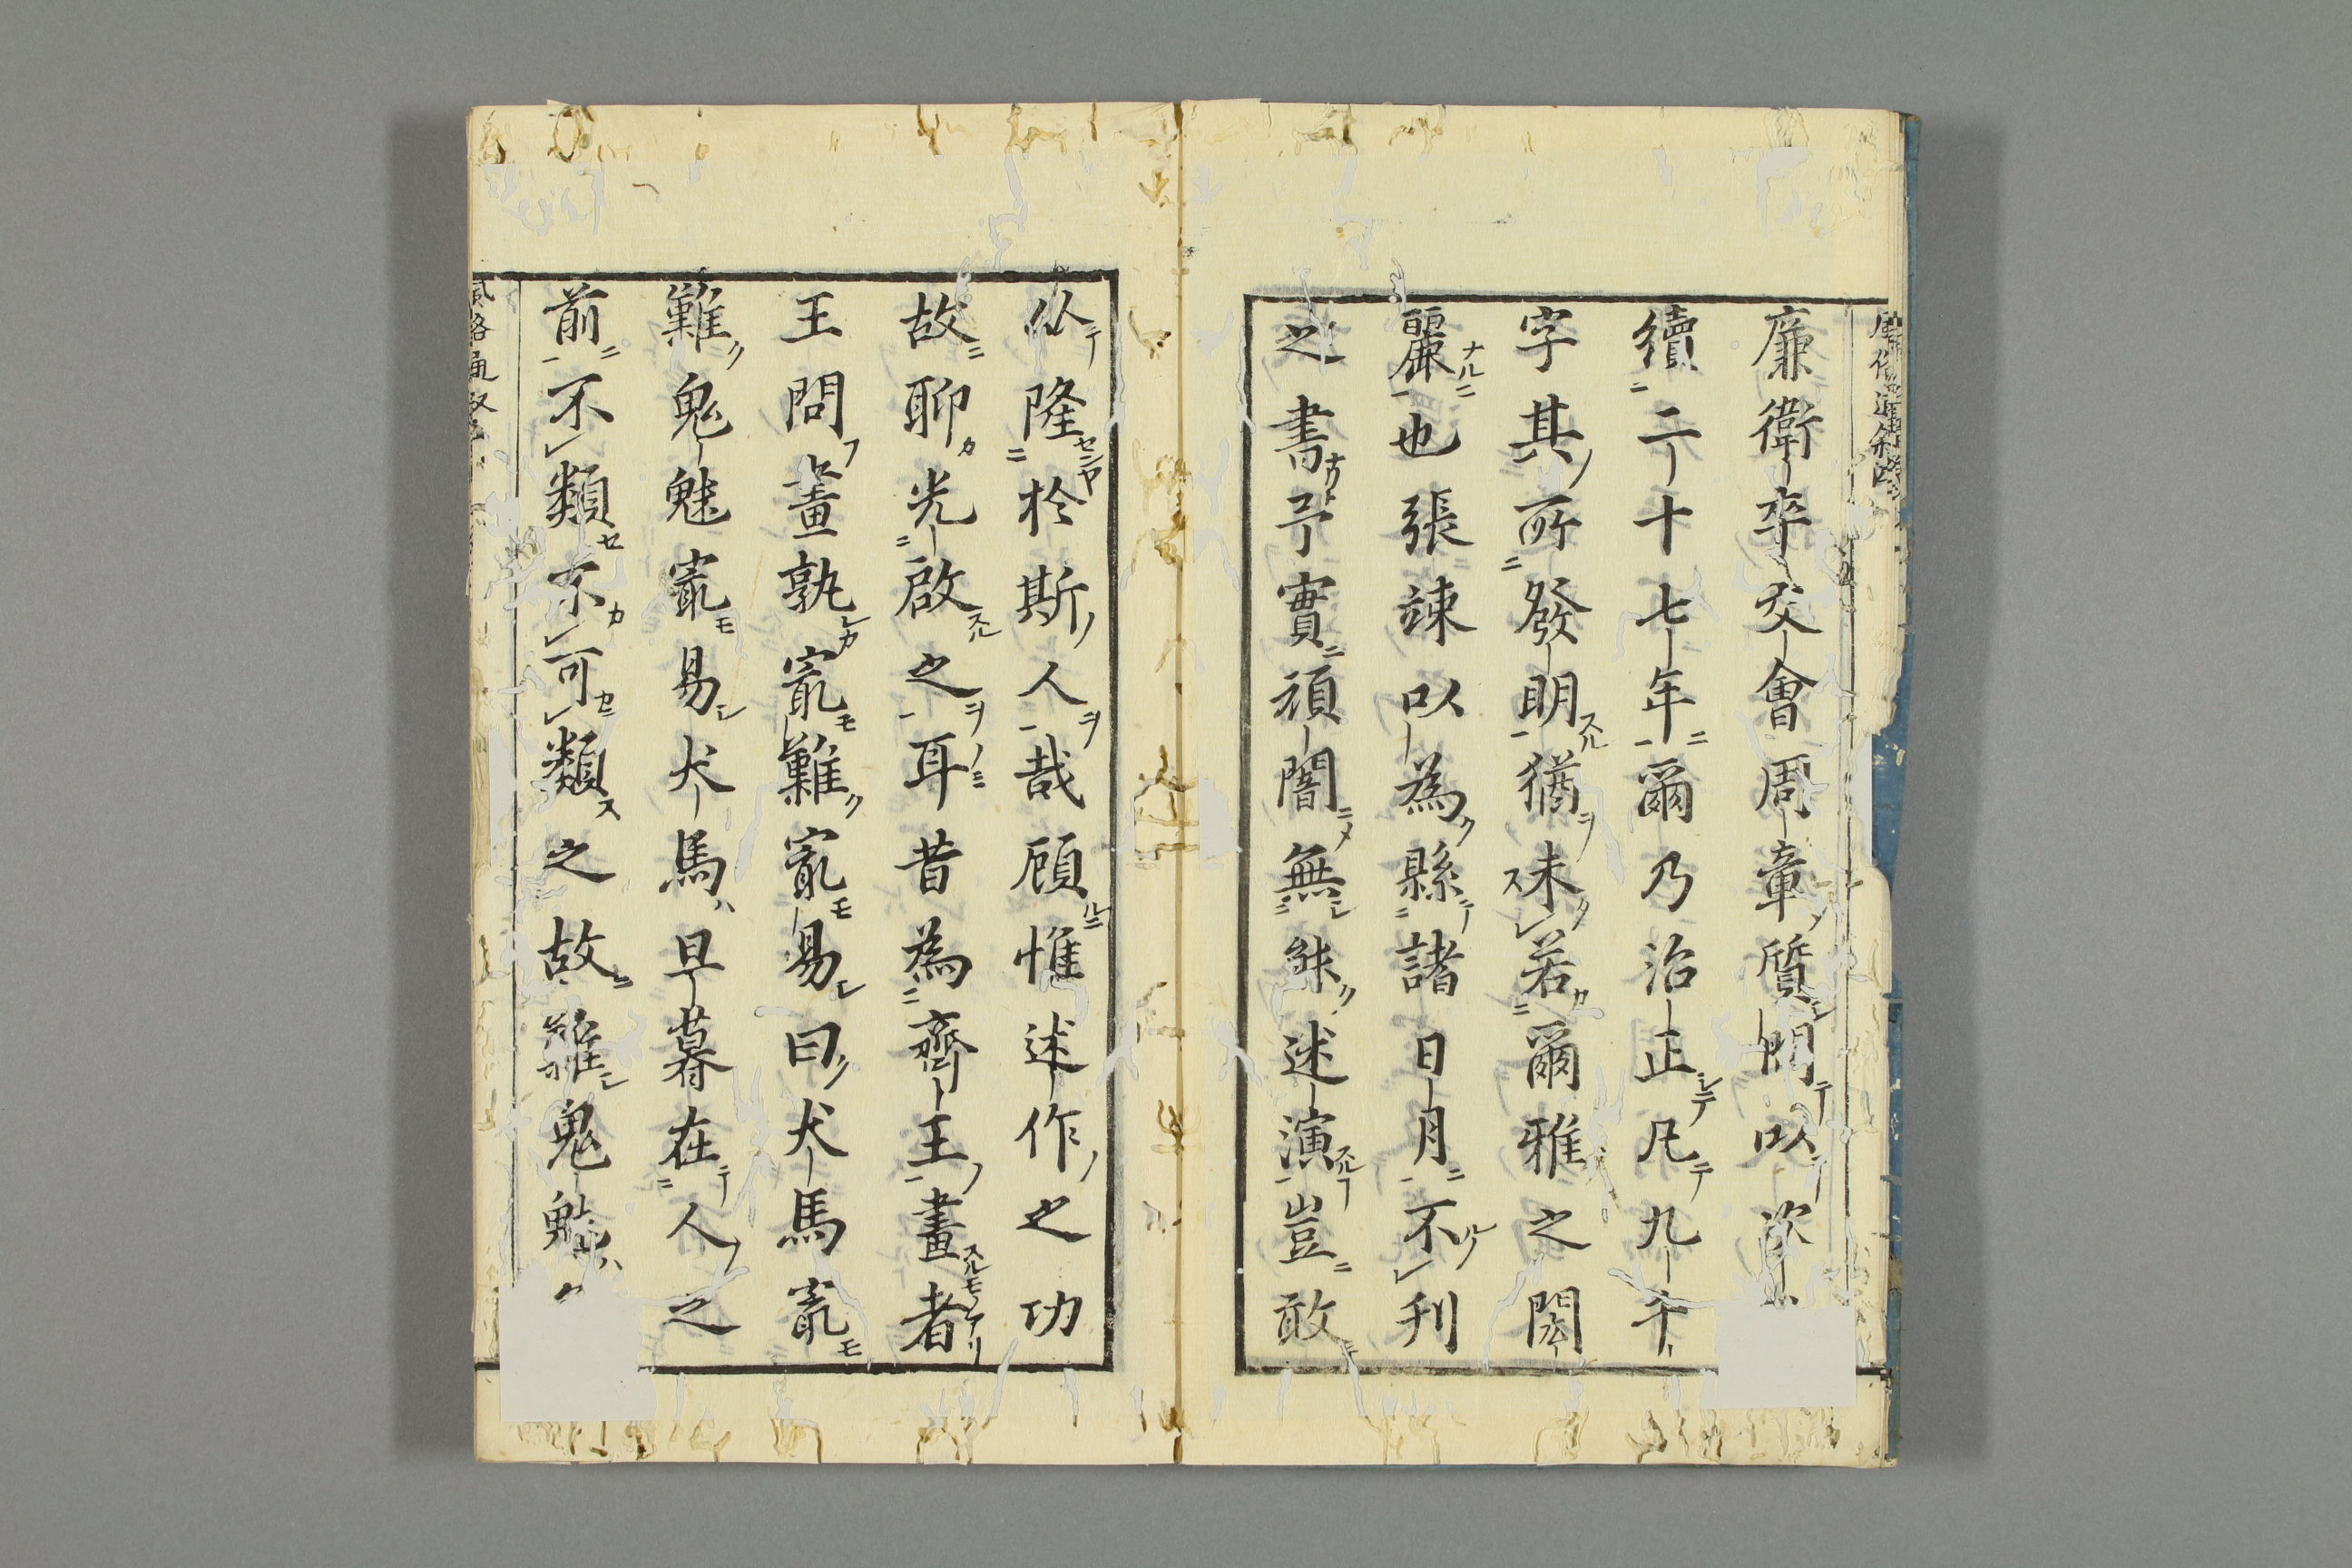 廉衛卒交會周章質問以次
續二十七年爾乃治正凡九千
字其所發明猶未若爾雅之閎
麗也張竦以為縣諸日月不刊
之書予實頑闇無能述演豈敢
似隆於斯人哉顧惟述作之功
故聊光啟之耳昔為齊王畫者
王問畫孰㝡難㝡易曰犬馬㝡
難鬼魅㝡易犬馬旦暮在人之
前不類不可類之故難鬼魅